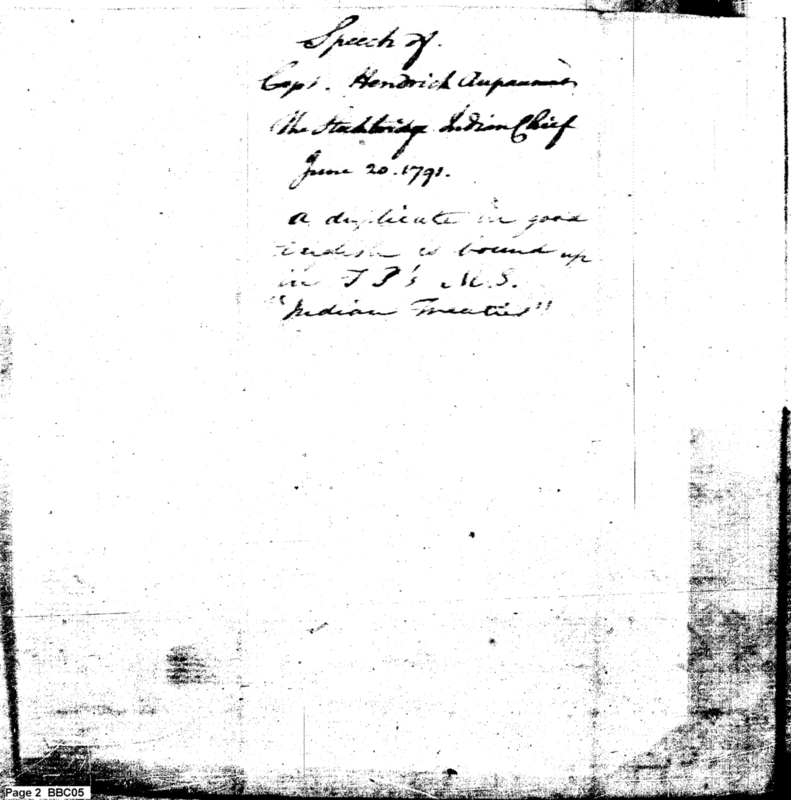 Speech of.
Capt. Hendrick Aupaumut
The Stockbridge Indian Chief
June 20. 1791.
A duplicate in good
English is bound up
in T P's M.S.
"Indian Treaties"
Page 2 BBC05